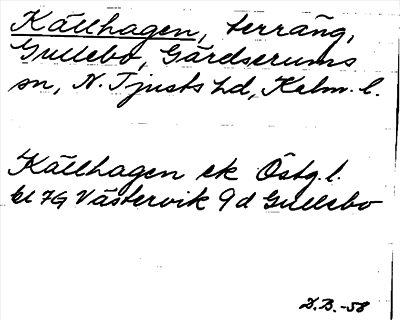 Källhagen, terräng,
Gullebo, Gärdserums
sn, N. Tjusts hd, Kalm. l.
Källhagen ek Östg. l.
bl 74 Västervik 9 d Gullebo
D.B.-58